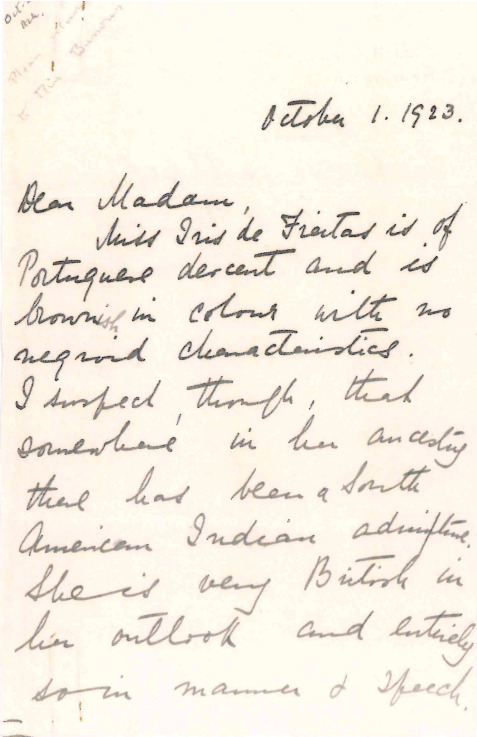 Oct.
Mean
to Miss Burrows
October 1. 1923.
Dear Madam,
Miss Iris de Freitas is of
Portuguese descent and is
brownish in colour with no
negroid characteristics.
I suspect, though, that
somewhere in her ancestry
there has been a South
American Indian admixture.
She is very British in
her outlook and entirely
so in manner & speech.